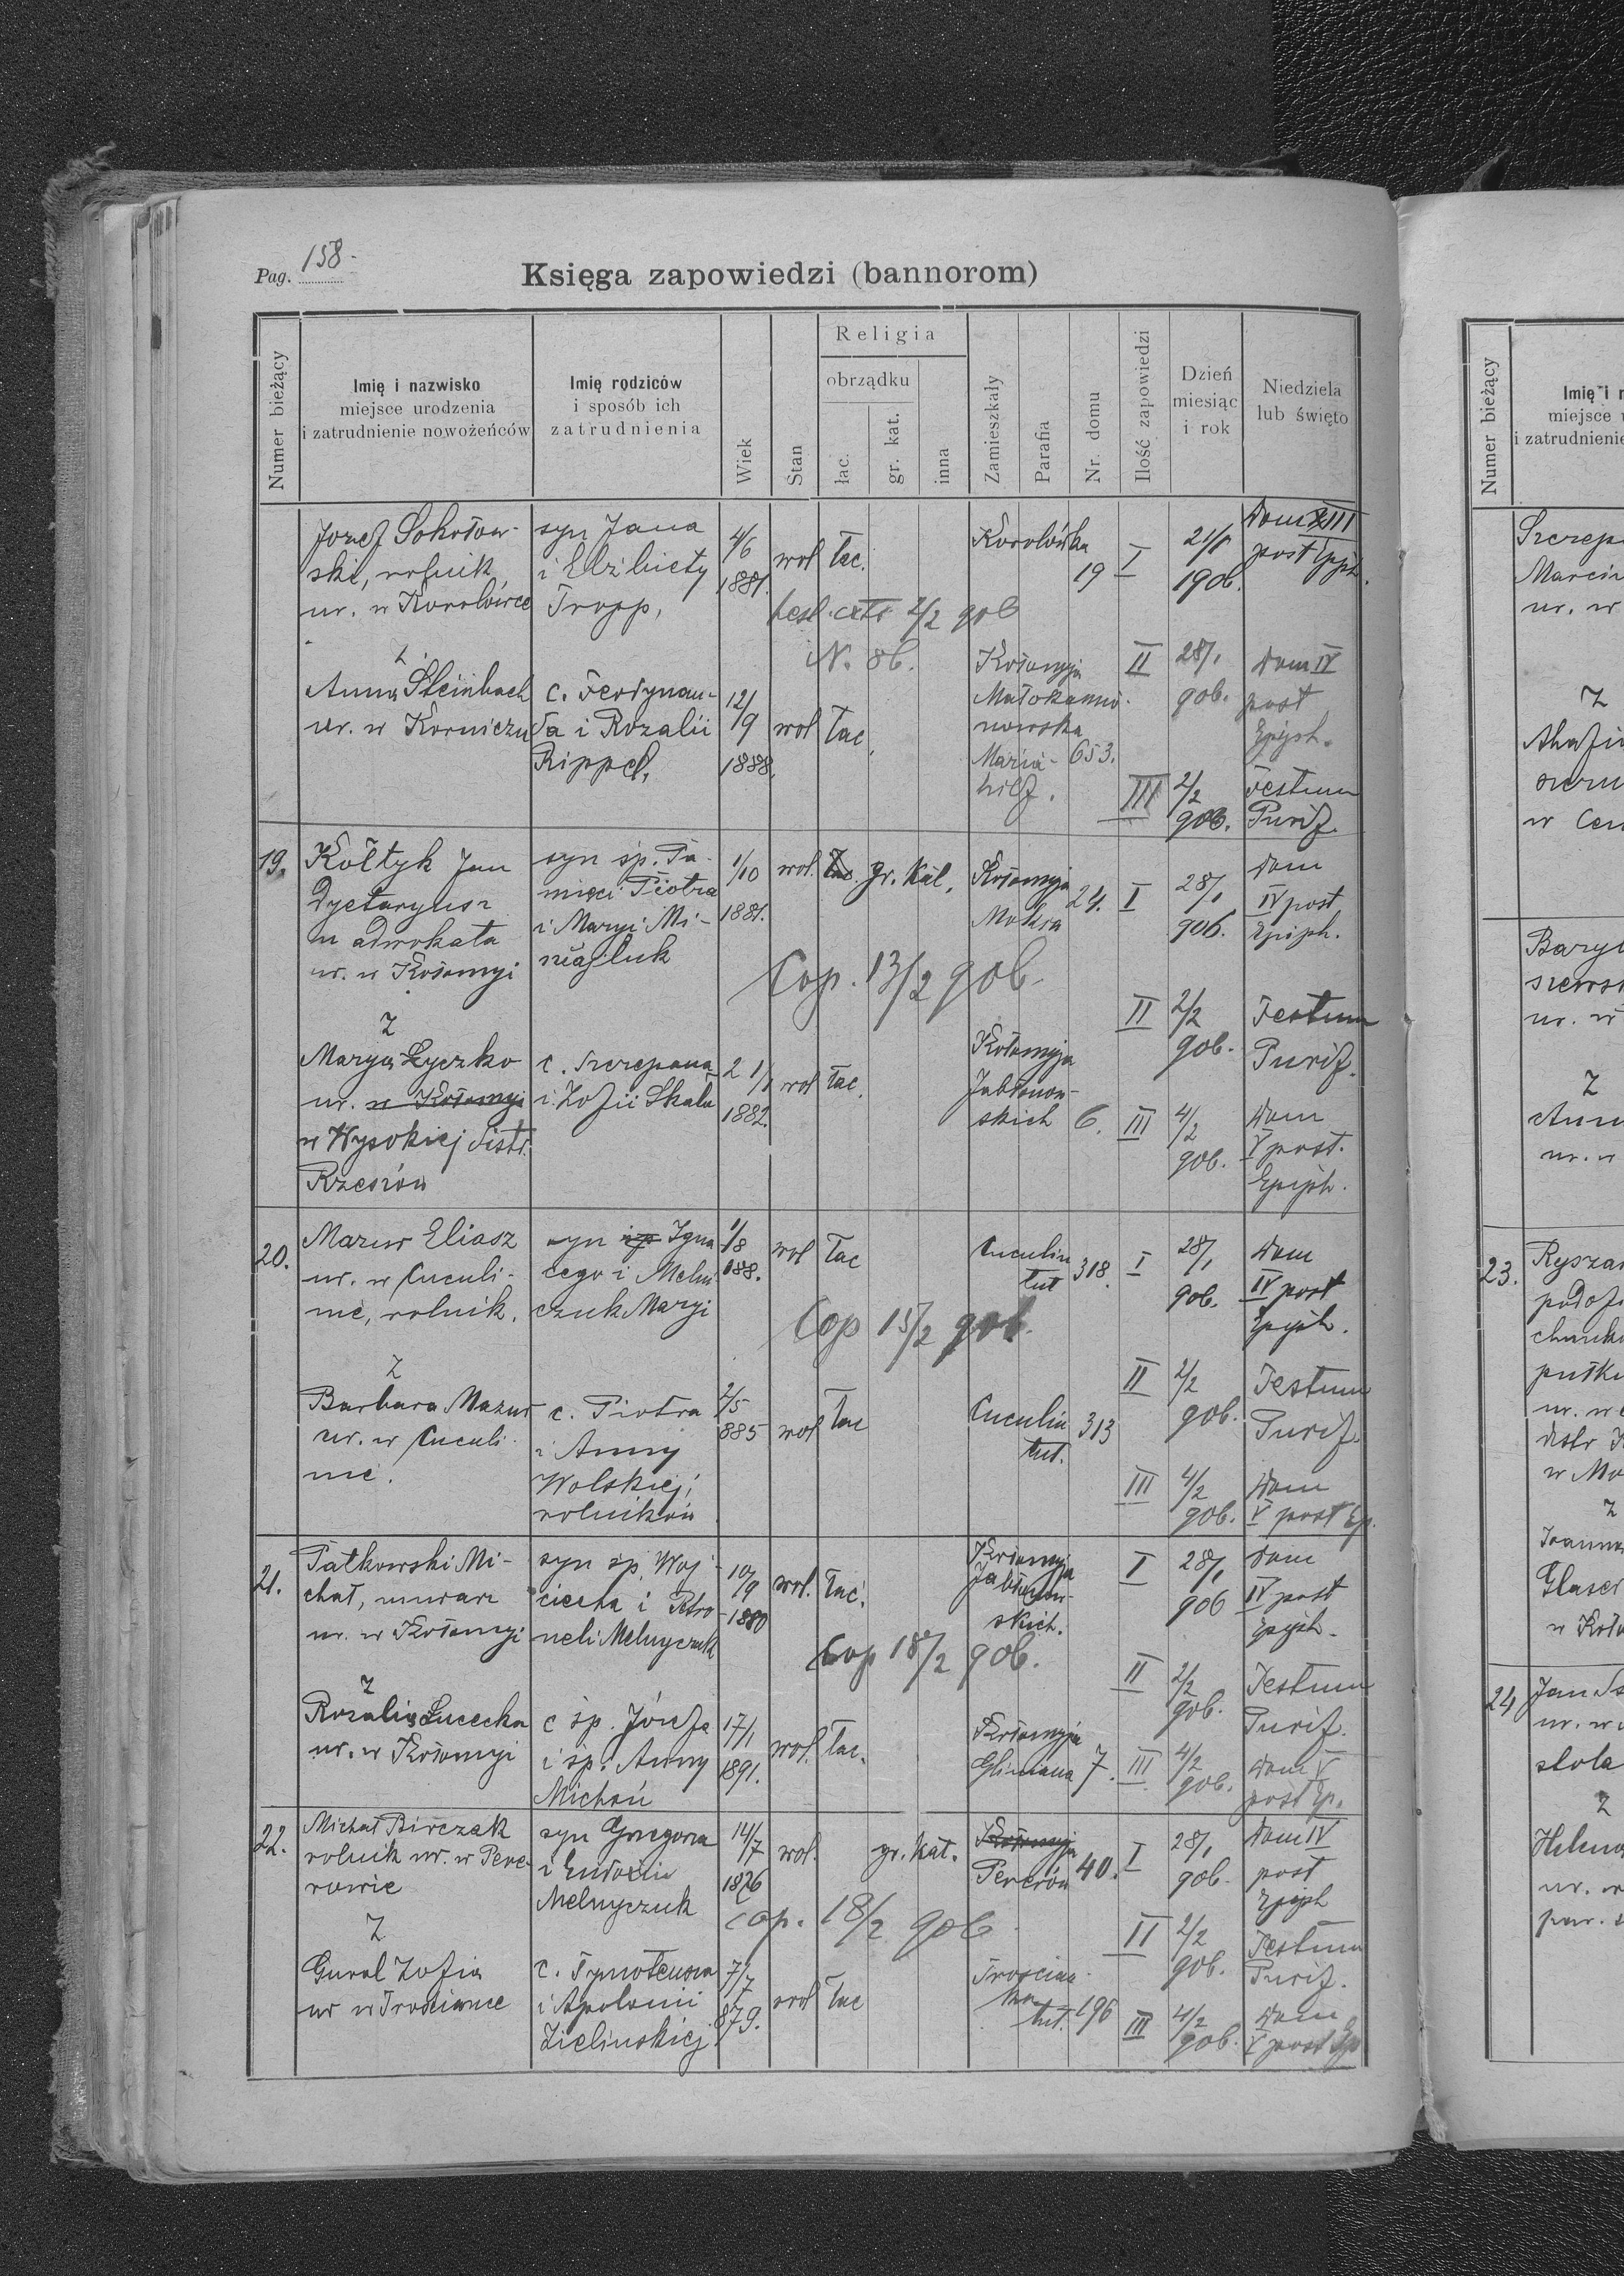 Pag. 158.
Księga zapowiedzi (bannorom)
Numer bieżący
Imię i nazwisko
miejsce urodzenia
i zatrudnienie nowożeńców
Imię rodziców
i sposób ich
zatrudnienia
Wiek
Stan
Religia
obrządku
łac.
gr. kat.
inna
Zamieszkały
Parafia
Nr. domu
Ilość zapowiedzi
Dzień
miesiąc
i rok
Niedziela
lub święto
Józef Sokołow-
ski, rolnik
ur. w Korolówce
syn Jana
i Elżbiety
Tropp,
4/6
1881.
wol
łac.
Korolówka
19
I
21/1
1906.
Dom III
post Epph.
2/2 906
N. 86.
z
Anna Steinbach
ur. w Korniczu
c. Ferdynan-
da i Rozalii
Rippel,
12/9
1888.
wol
łac.
Kołomyja
Maria-
hilf.
653.
II
28/1
906.
Dom IV
post
Epiph.
III
2/2
906.
Festum
Purif.
19.
Kołtyk Jan
Dyetaryusz
u adwokata
ur. w Kołomyi
syn śp. Pa-
mięci Piotra
i Maryi Mi-
1/10
1881.
wol.
łac.
gr. kat.
Kołomyja
Mokra
24.
I
28/1
906.
Dom
IV post
Epiph.
Cop. 13/2 906
II
2/2
906.
Festum
Purif.
z
Marya Łyczko
ur. w Kołomyi
w Wysokiej distr.
Rzeszów
c. Szczepana
i Zofii Skała
2 1/1
1882.
wol
łac.
Kołomyja
Jabłonow-
skich
6.
III
4/2
906.
Dom
V post.
Epiph.
20.
Mazur Eliasz
ur. w Cuculi-
nie, rolnik.
syn śp Igna
cego i Melni
czuk Maryi
1/8
188.
wol
łac
Cuculin
tut
318.
I
28/1
906.
Dom
IV post
Epiph.
Cop 15/2 906.
II
2/2
906.
Festum
Purif.
z
Barbara Mazur
ur. w Cuculi-
nie.
c. Piotra
i Anny
Wolskiej,
rolników
2/5
885
wol
łac
Cuculin
tut.
313
III
4/2
906.
Dom
V post Ep.
21.
Pałkowski Mi-
chał, murarz
ur. w Kołomyi
syn śp. Woj-
ciecha i Petro-
neli Melnyczuk
10/9
1880
wol.
łac.
Kołomyja
Jabłonow-
skich.
I
28/1
906
Dom
IV post
Epiph.
Cop 18/2 906.
II
2/2
906.
Festum
Purif.
z
Rozalia Łucecka
ur. w Kołomyi
c śp. Józefa
i śp. Anny
Michoń
17/1
1891.
wol.
łac.
Kołomyja
Gliniana
7.
III
4/2
906.
Dom V
post Ep.
22.
Michał Birczak
rolnik ur. w Pere-
rowie
syn Grzegorza
i Eudoxii
Melnyczuk
14/7
1876
wol.
gr. kat.
Kołomyja
Pererów
40.
I
28/1
906.
Dom IV
post
Epiph
cop. 18/2 906
II
2/2
906.
Festum
Purif.
z
Gural Zofia
ur w Trościance
c. Tymoteusza
i Apolonii
Zielinskiej
7/7
879.
wol
łac
Trościan-
ka
tut.
196
III
4/2
906.
Dom
V post Ep
Numer bieżący
Marcin
ur. w
z
w
z
ur. w
23.
w
z
Glaser
24
Jan
ur. w
z
Helena
ur. w